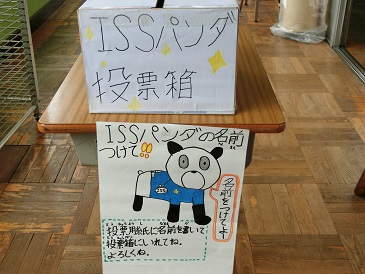 ISSパンダ
投票箱
ISSパンダの名前
つけて!!
名前をつけてよ
投票用紙に名前を書いて
投票箱にいれてね。
よろしくね。